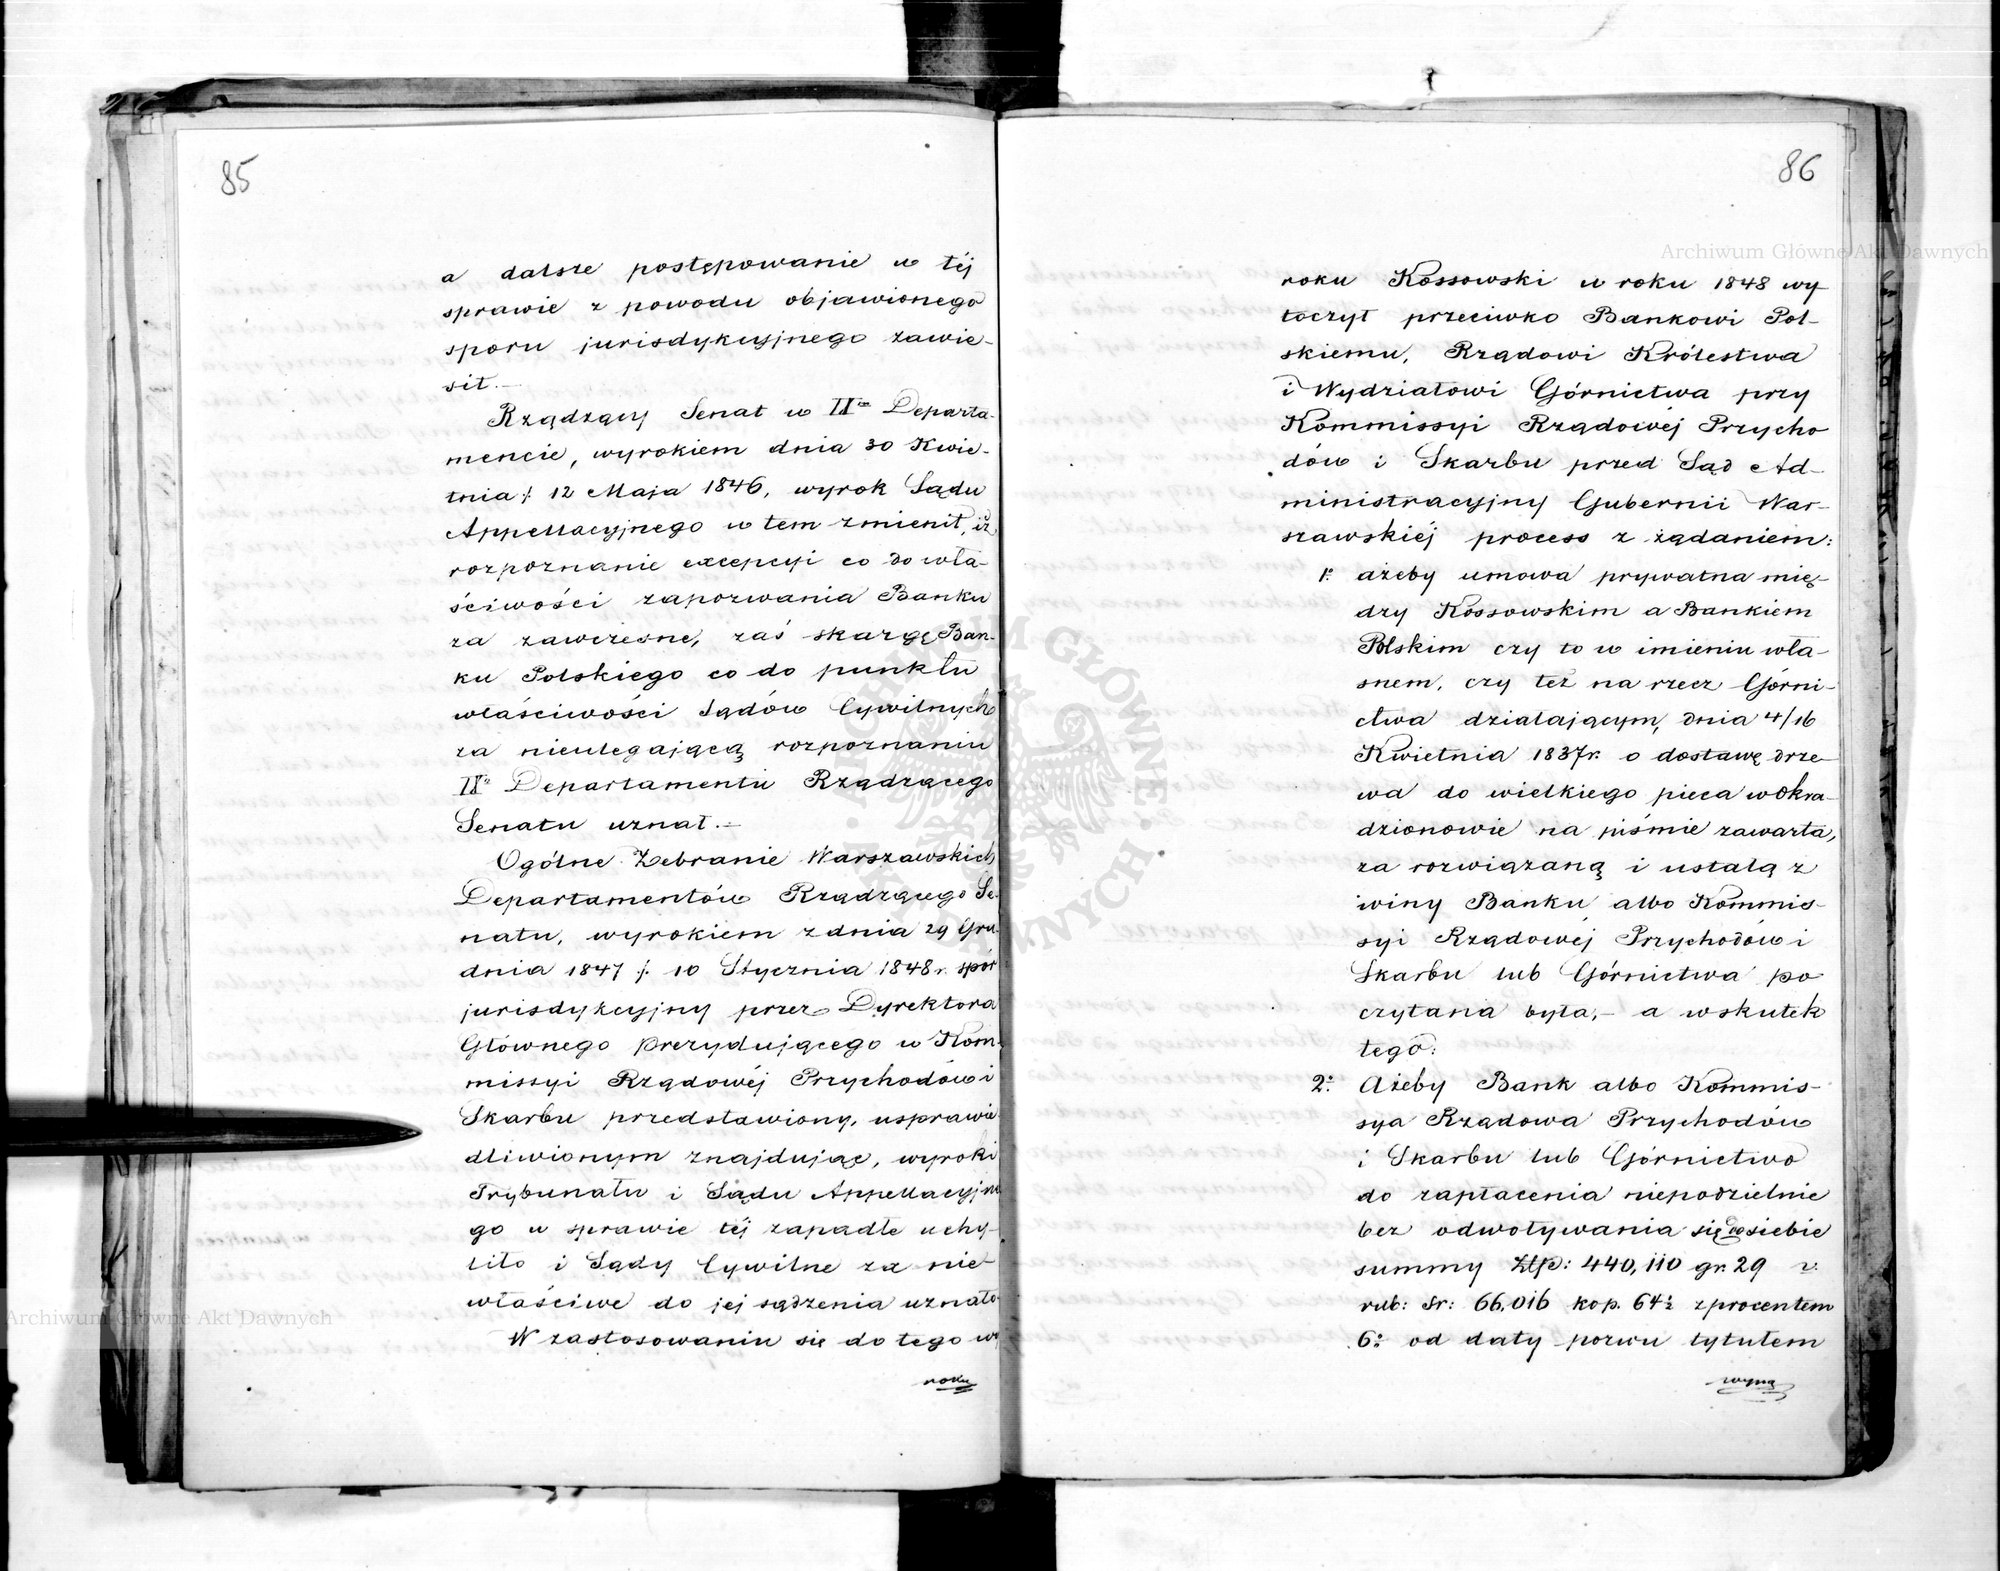 85
a dalsze postępowanie w téj
sprawie z powodu objawionego
sporu jurisdykcyjnego zawie-
sił.—
Rządzący Senat w IXm Departa-
mencie, wyrokiem dnia 30 Kwie-
tnia /: 12 Maja 1846, wyrok Sądu
Appellacyjnego w tem zmienił, iż
rozpoznanie excepcyi co do wła-
ściwości zapozwania Banku
za zawczesne, zaś skargę Ban-
ku Polskiego co do punktu
właściwości Sądów Cywilnych
za nieulegającą rozpoznaniu
IXo Departamentu Rządzącego
Senatu uznał.—
Ogólne Zebranie Warszawskich
Departamentów Rządzącego Se-
natu, wyrokiem z dnia 29 Gru-
dnia 1847 /: 10 Stycznia 1848 r. spór
jurisdykcyjny przez Dyrektora
Głównego Prezydującego w Kom-
missyi Rządowéj Przychodów i
Skarbu przedstawiony, usprawie
dliwionym znajdując, wyroki
Trybunału i Sądu Appellacyjne
go w sprawie téj zapadłe uchy-
liło i Sądy Cywilne za nie-
właściwe do jej sądzenia uznało.
W zastosowaniu się do tego wy
roku
86
roku Kossowski w roku 1848 wy-
toczył przeciwko Bankowi Pol-
skiemu, Rządowi Królestwa
i Wydziałowi Górnictwa przy
Kommissyi Rządowéj Przycho
dów i Skarbu przed Sąd Ad-
ministracyjny Gubernii War-
szawskiéj process z żądaniem:
1o ażeby umowa prywatna mię-
dzy Kossowskim a Bankiem
Polskim czy to w imieniu wła-
snem, czy też na rzecz Górni-
ctwa działającym, dnia 4/16
Kwietnia 1837 r. o dostawę drze-
wa do wielkiego pieca w Okra-
dzionowie na piśmie zawarta,
za rozwiązaną i ustałą z
winy Banku albo Kommis-
syi Rządowéj Przychodów i
Skarbu lub Górnictwa po
czytana była,— a wskutek
tego:
2o Ażeby Bank albo Kommis-
sya Rządowa Przychodów
i Skarbu lub Górnictwo
do zapłacenia niepodzielnie
bez odwoływania się do siebie
summy Złp: 440,110 gr. 29 v.
rub: sr: 66,016 kop. 64½ z procentem
6o od daty pozwu tytułem
wyna
Archiwum Główne Akt Dawnych
Archiwum Główne Akt Dawnych